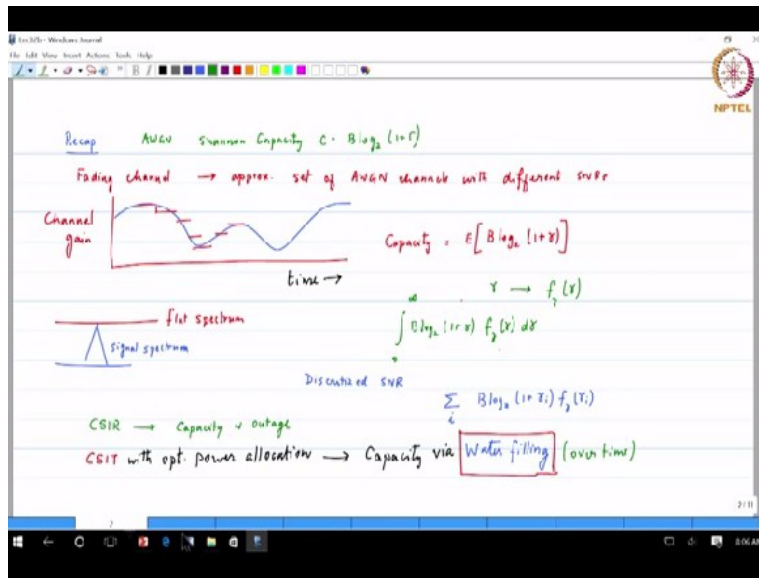 Windows Journal
File Edit View Insert Actions Tools Help
NPTEL
Recap AWGN Shannon Capacity C = B log₂ (1+Γ)
Fading channel → approx. set of AWGN channels with different SNRs
Channel
gain
Capacity = E[B log₂ (1+γ)]
time →
γ → f_γ(γ)
flat spectrum
∫₀^∞ B log₂ (1+γ) f_γ(γ) dγ
signal spectrum
Discretized SNR
∑_i B log₂ (1+γ_i) f_γ(γ_i)
CSIR → Capacity v outage
CSIT with opt. power allocation → Capacity via Water filling (over time)
2/11
2
8:06 AM